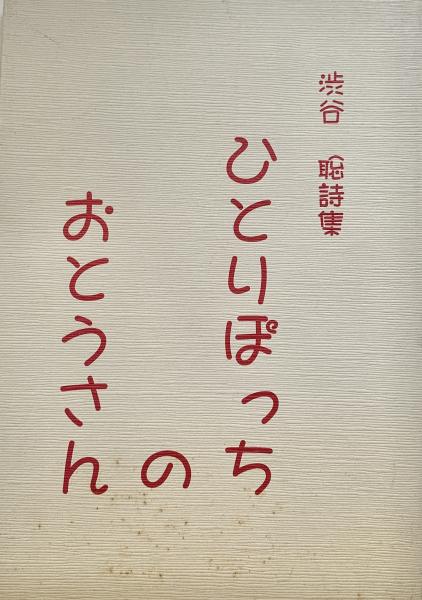 渋谷 聡詩集
ひとりぽっち
の
おとうさん